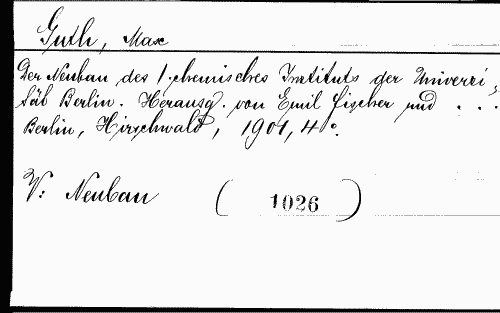 Guth, Max
Der Neubau des I. chemisches Instituts der Universi,
tät Berlin. Herausg. von Emil Fischer und . . .
Berlin, Hirschwald, 1901, 4°.
V: Neubau ( 1026 )